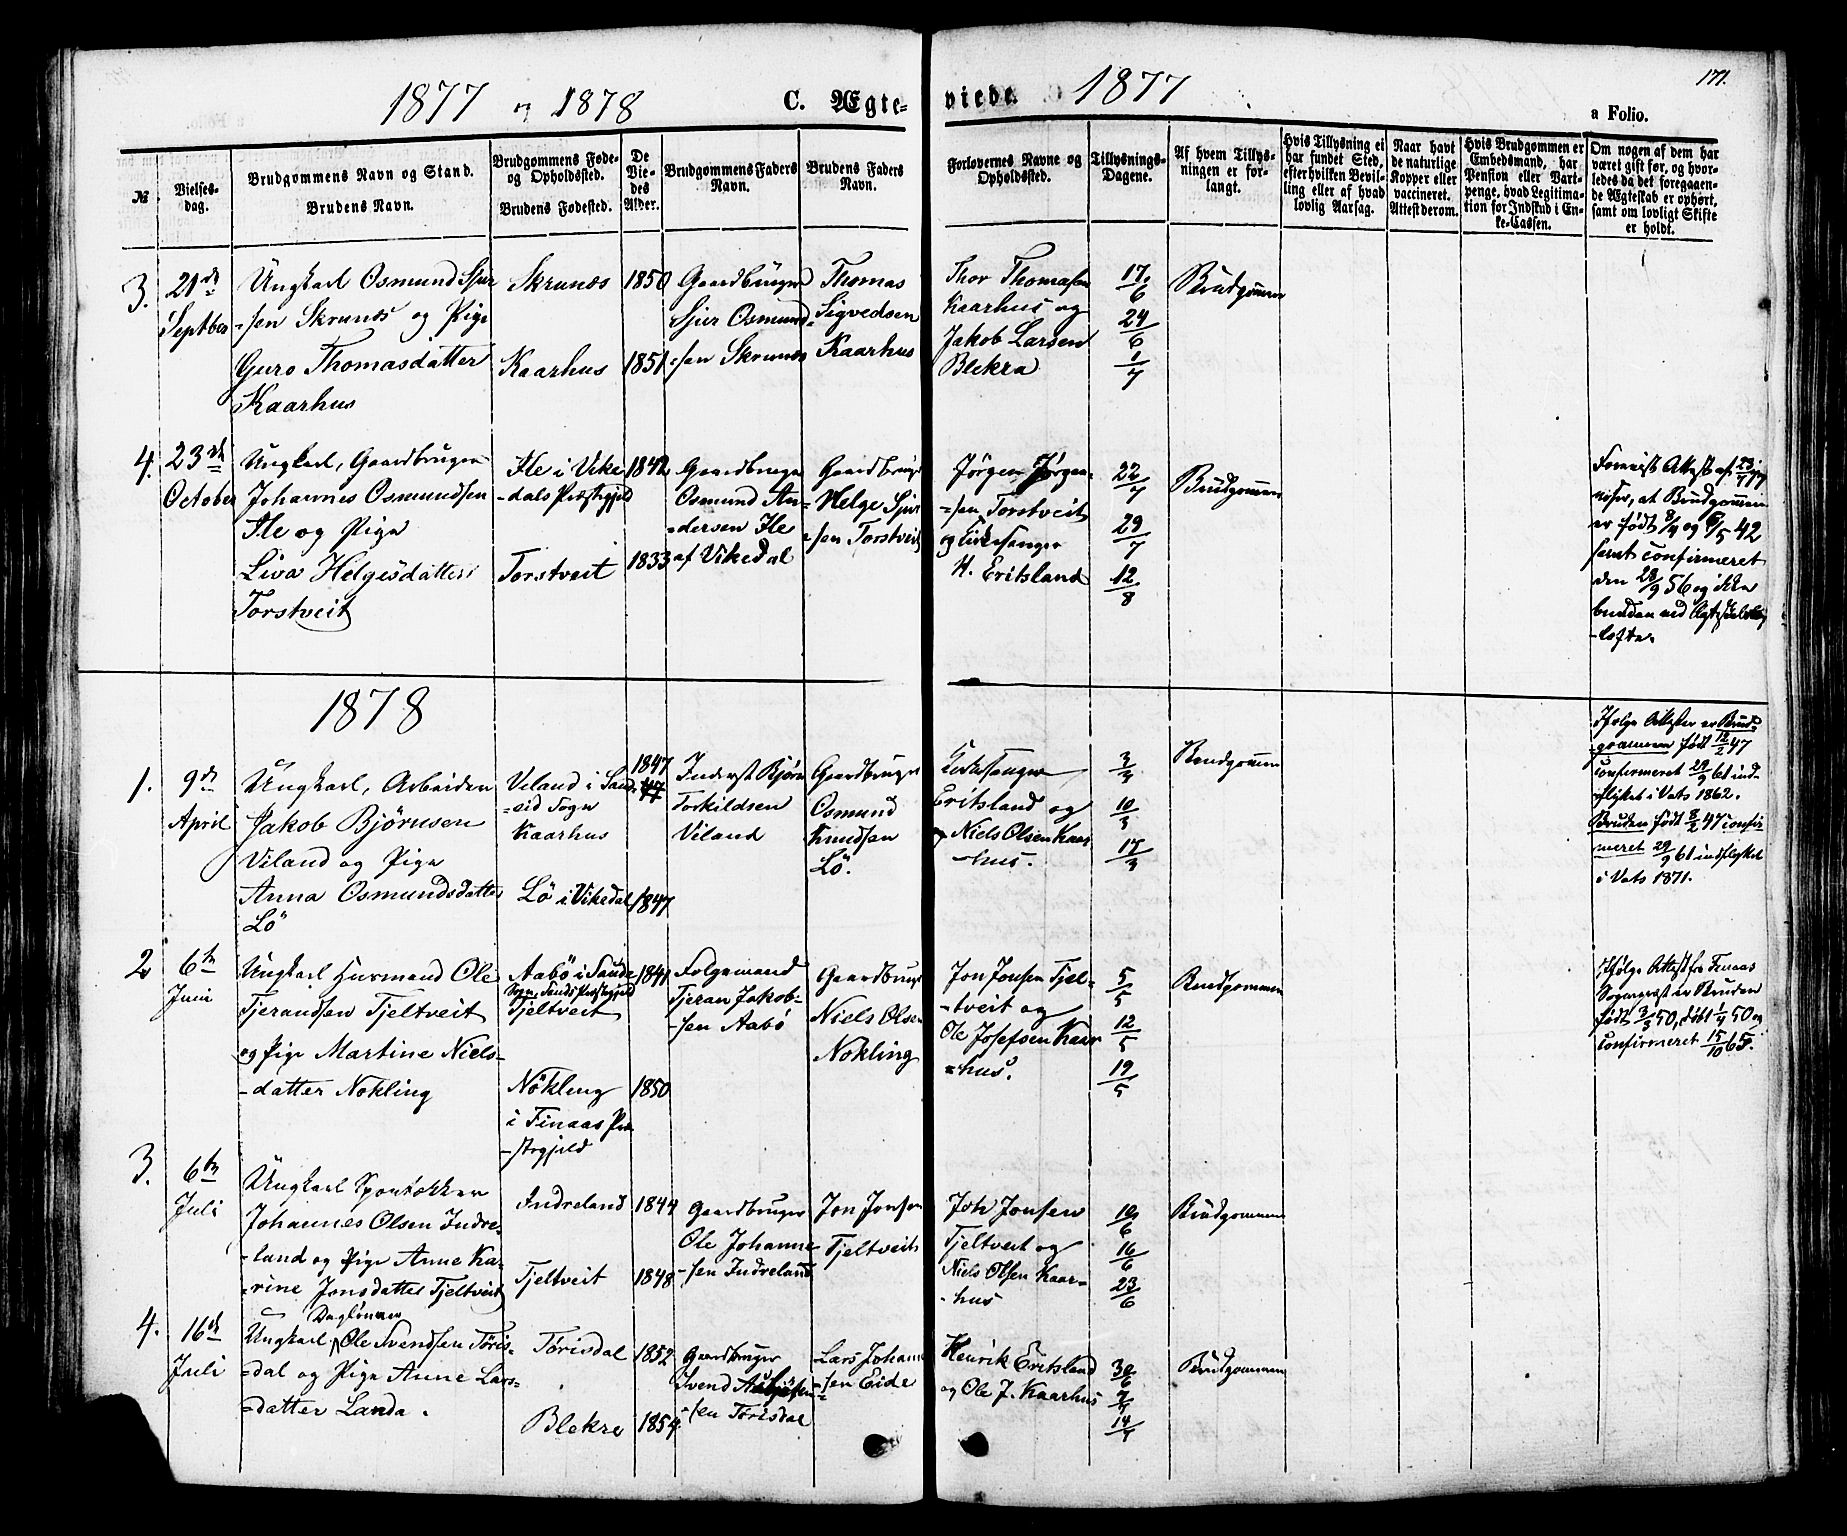 1877 og 1878
C. Ægte-
viede.
1877
171.
a Folio.
№
Vielses-
dag.
Brudgommens Navn og Stand.
Brudens Navn.
Brudgommens Føde-
og Opholdssted.
Brudens Fødested.
De
Vie-
des
Alder.
Brudgommens Faders
Navn.
Brudens Faders
Navn.
Forlovernes Navne og
Opholdssted.
Tillysnings-
Dagene.
Af hvem Tillys-
ningen er for-
langt.
Hvis Tillysning ei
har fundet Sted,
efter hvilken Bevil-
ling eller af hvad
lovlig Aarsag.
Naar havt
de naturlige
Kopper eller
vaccineret.
Attest derom.
Hvis Brudgommen er
Embedsmand, har
Pension eller Vart-
penge, hvad Legitima-
tion for Indskud i En-
ke-Cassen.
Om nogen af dem har
været gift før, og hvor-
ledes da det foregaaen-
de Ægteskab er ophørt,
samt om lovligt Skifte
er holdt.
3.
21de
Septber
Ungkarl Osmund Sjur
-sen Skrunes og Pige
Guro Thomasdatter
Kaarhus
Skrunes
Kaarhus
1850
1851
Gaardbruger
Sjur Osmund-
-sen Skrunes
Thomas
Sigvedsen
Kaarhus
Thor Thomasen
Kaarhus og
Jakob Larsen
Blekra
17/6
24/6
1/7
Brudgommen
4.
23de
October
Ungkarl, Gaardbruger
Johannes Osmundsen
Ile og Pige
Liva Helgesdatter
Torstveit
Ile i Vike
-dals Præstegjeld
Torstveit
1842
1833
Gaardbruger
Osmund An-
-dersen Ile
af Vikedal
Gaardbruger
Helge Sjur
-sen Torstveit
Jørgen Jørgen-
-sen Torstveit
og Kirkesanger
H. Eritsland
22/7
29/7
12/8
Brudgommen
Foreviist Attest af 23/7 77
viser, at Brudgommen
er født 8/4 og 6/5 42
samt confirmeret
den 28/9 56 og ikke
bunden ved Ægteskabs
-løfte.
1878
1.
9de
April
Ungkarl, Arbeider
Jakob Björnsen
Viland og Pige
Anna Osmundsdatter
Lö
Viland i Sand-
-eid Sogn
Kaarhus
Lö i Vikedal
1847
1847
Inderst Bjørn
Torkildsen
Viland
Gaardbruger
Osmund
Knudsen
Lö.
Kirkesanger
Eritsland og
Niels Olsen Kaar
-hus.
3/3
10/3
17/3
Brudgommen
Ifølge Attester er Brud-
-gommen født 12/2 47
confirmeret 29/9 61 ind-
-flyttet i Vats 1862.
Bruden født 8/2 47 confir
meret 29/9 61 indflyttet
i Vats 1871.
2
6te
Juni
Ungkarl Husmand Ole
Tjerandsen Tjeltveit
og Pige Martine Niels-
-datter Nökling
Aabö i Sande
Sogn, Sands Præstegjeld
Tjeltveit
Nökling
i Finaas Præ
-stegjeld
1841
1850
Folgemand
Tjeran Jakob-
-sen Aabö
Gaardbruger
Niels Olsen
Nökling
Jon Jonsen Tjel-
-tveit og
Ole Josefsen Kaar
-hus.
5/5
12/5
19/5
Brudgommen
Ifølge Attest fra Finaas
Sogneprest er Bruden
født 3/3 50, døbt 1/4 50 og
confirmeret 15/10 65.
3.
6te
Juli
Ungkarl
Johannes Olsen Indre-
-land og Pige Anne Ka-
-rine Jonsdatter Tjeltveit
Indreland
Tjeltveit
1844
1848
Gaardbruger
Ole Johanne
-sen Indreland
Jon Jonsen
Tjeltveit
Joh Jonsen
Tjeltveit og
Niels Olsen Kaar-
-hus
10/6
16/6
23/6
Brudgommen
4.
16de
Juli
Ungkarl, Ole Svendsen Töris-
-dal og Pige Anne Lars-
-datter Landa.
Törisdal
Blekre
1852
1854
Gaardbruger
Svend
-sen Törisdal
Lars Johan
-sen Eide
Henrik Eritsland
og Ole J. Kaarhus
30/6
7/7
14/7
Brudgommen